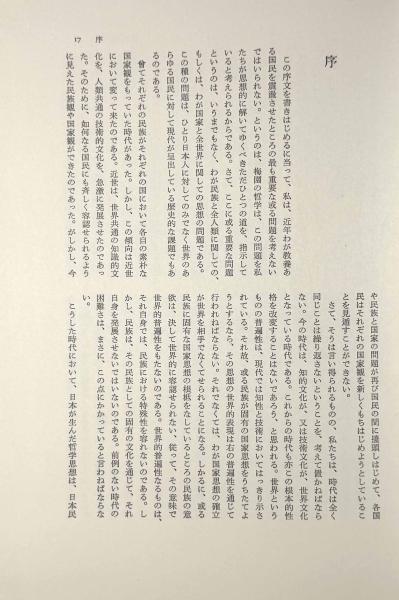 序
17
序
この序文を書きはじめるに当って、私は、近年わが教養あ
る国民を震撼させたところの最も重要な或る問題を考えない
ではいられない。というのは、梅園の哲学は、この問題を私
たちが思想的に解いてゆくべきただひとつの道を、指示して
いると考えられるからである。さて、ここに或る重要な問題
というのは、いうまでもなく、わが民族と全人類に関しての、
もしくは、わが国家と全世界に関しての思想の問題である。
この種の問題は、ひとり日本人に対してのみでなく世界のあ
らゆる国民に対して現代が呈出している歴史的な課題でもあ
るのである。
曾てそれぞれの民族がそれぞれの国において各自の素朴な
国家観をもっていた時代があった。しかし、この傾向は近世
において変って来たのである。近世は、世界共通の知識的文
化を、人類共通の技術的文化を、急激に発展させたのであっ
た。そのために、如何なる国民にも斉しく容認せられるよう
に見えた民族観や国家観ができたのであった。がしかし、今
や民族と国家の問題が再び国民の間に擡頭しはじめて、各国
民はそれぞれの国家観を新しくもちはじめようとしているこ
とを見逃すことができない。
さて、そうは言い得られるものの、私たちは、時代は全く
同じことは繰り返さないということを、考えて置かねばなら
ない。今の時代は、知的文化が、又は技術文化が、世界文化
となっている時代である。これからの時代も亦この根本的性
格を改変することはないであろう、と思われる。世界という
ものの普遍性は、現代では知性と技術においてはっきり示さ
れている。それ故、或る民族が固有の国家思想をうちたてよ
うとするなら、その思想の世界的表現は右の普遍性を通じて
行われねばならない。それでなくては、わが国家思想の確立
が世界を相手でなくてせられることになる。しかるに、或る
民族に固有な国家思想の根柢をなしているところの民族の意
欲は、決して世界的に容認せられない、従って、その意味で
世界的普遍性をもたないのである。世界的普遍性なるものは、
それ自身では、民族における特殊性を容れないのである。し
かし、民族は、その民族としての固有の文化を通じて、それ
自身を発展させないではいないのである。前例のない時代の
困難さは、まさに、この点にかかっていると言わねばならな
い。
こうした時代において、日本が生んだ哲学思想は、日本民